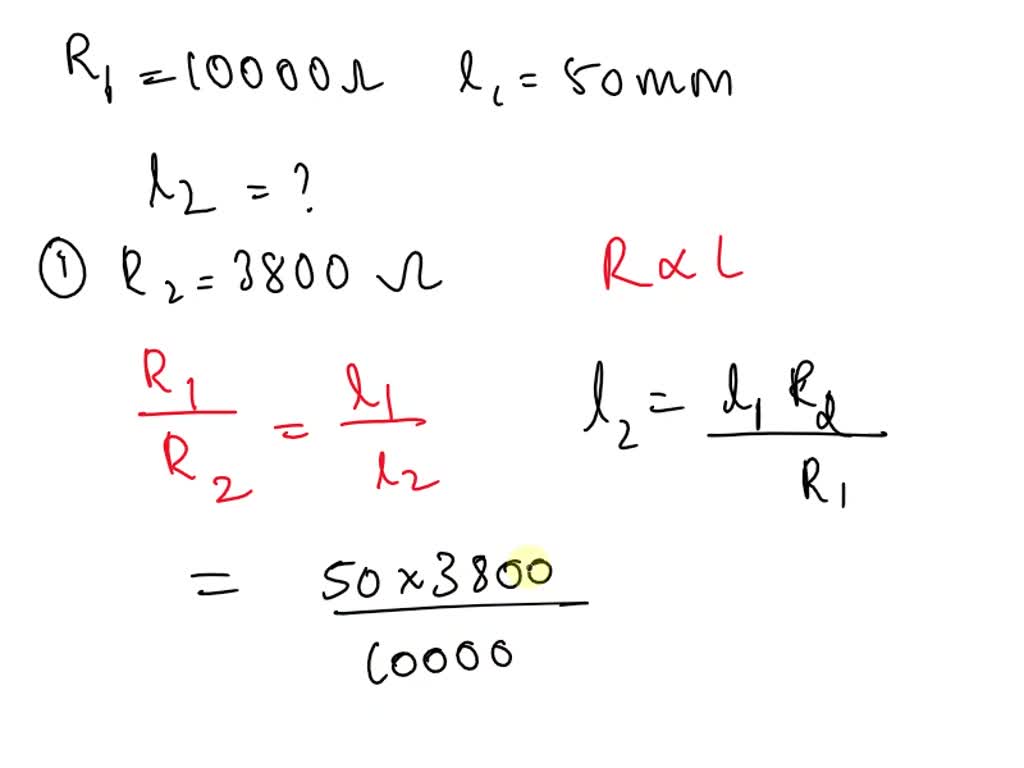 R₁ = 10000Ω l₁ = 50mm
l₂ = ?
① R₂ = 3800 Ω R ∝ L
R₁/R₂ = l₁/l₂ l₂ = l₁ R₂/R₁
= 50 × 3800/10000